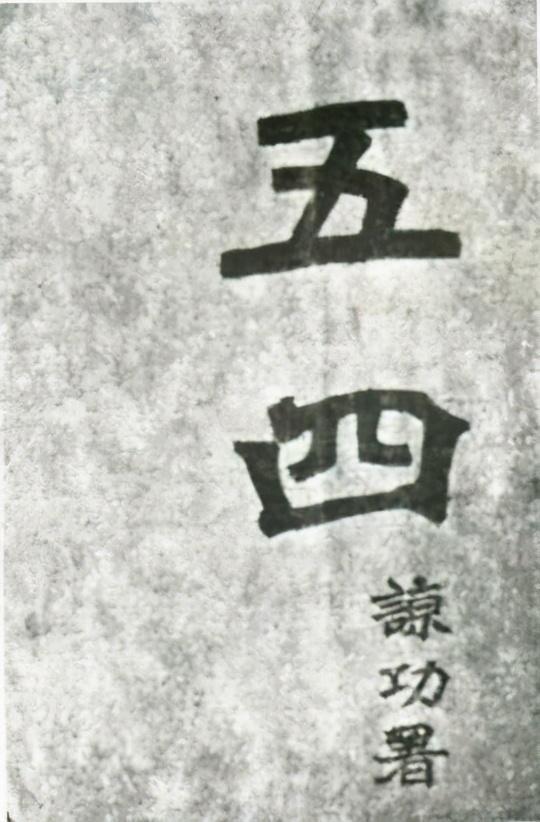 五四
諒功署